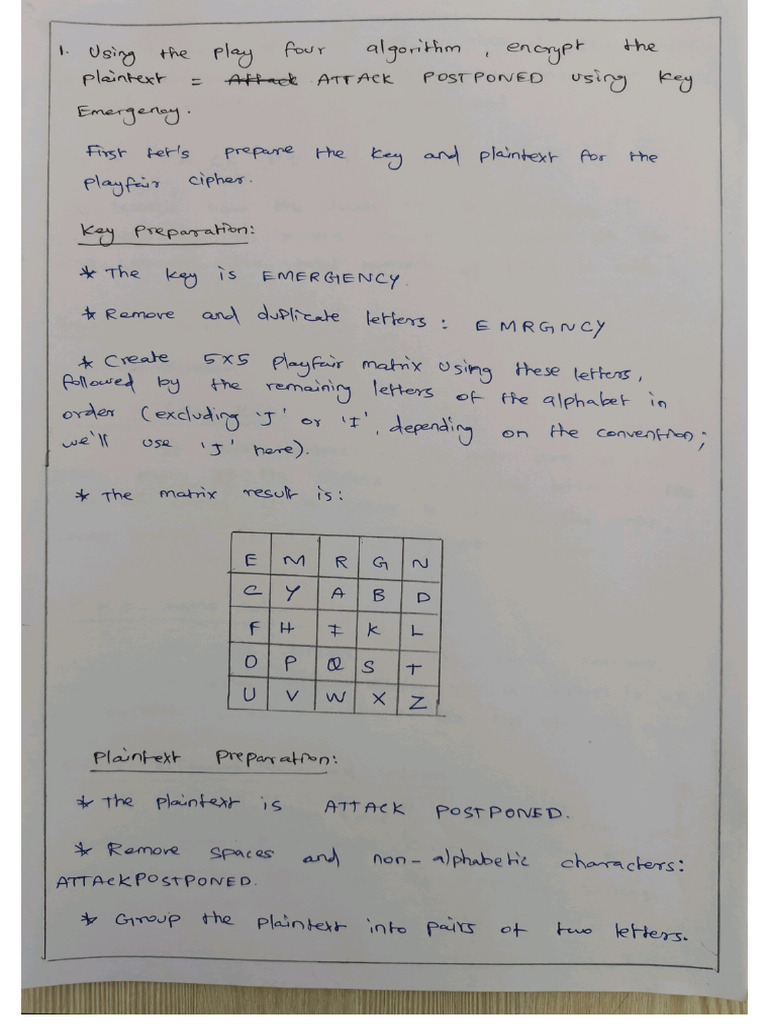 1. Using the play four algorithm, encrypt the
plaintext = Attack ATTACK POSTPONED using key
Emergency.
First let's prepare the key and plaintext for the
playfair cipher.
Key Preparation:
* The key is EMERGENCY.
* Remove and duplicate letters: EMRGNCY
* Create 5x5 playfair matrix using these letters,
followed by the remaining letters of the alphabet in
order (excluding 'J' or 'I', depending on the convention;
we'll use 'J' here).
* The matrix result is:
E M R G N
C Y A B D
F H I K L
O P Q S T
U V W X Z
Plaintext Preparation:
* The plaintext is ATTACK POSTPONED.
* Remove spaces and non-alphabetic characters:
ATTACKPOSTPONED.
* Group the plaintext into pairs of two letters.